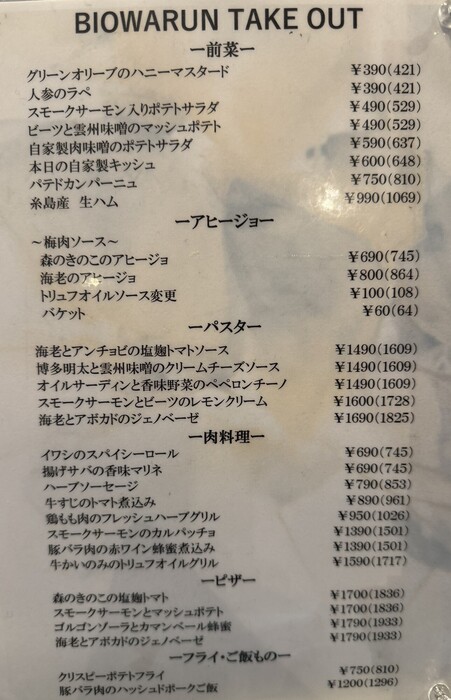 BIOWARUN TAKE OUT
ー前菜ー
グリーンオリーブのハニーマスタード ￥390(421)
人参のラペ ￥390(421)
スモークサーモン入りポテトサラダ ￥490(529)
ビーツと雲州味噌のマッシュポテト ￥490(529)
自家製肉味噌のポテトサラダ ￥590(637)
本日の自家製キッシュ ￥600(648)
パテドカンパーニュ ￥750(810)
糸島産 生ハム ￥990(1069)
ーアヒージョー
～梅肉ソース～
森のきのこのアヒージョ ￥690(745)
海老のアヒージョ ￥800(864)
トリュフオイルソース変更 ￥100(108)
バケット ￥60(64)
ーパスター
海老とアンチョビの塩麹トマトソース ￥1490(1609)
博多明太と雲州味噌のクリームチーズソース ￥1490(1609)
オイルサーディンと香味野菜のペペロンチーノ ￥1490(1609)
スモークサーモンとビーツのレモンクリーム ￥1600(1728)
海老とアボカドのジェノベーゼ ￥1690(1825)
ー肉料理ー
イワシのスパイシーロール ￥690(745)
揚げサバの香味マリネ ￥690(745)
ハーブソーセージ ￥790(853)
牛すじのトマト煮込み ￥890(961)
鶏もも肉のフレッシュハーブグリル ￥950(1026)
スモークサーモンのカルパッチョ ￥1390(1501)
豚バラ肉の赤ワイン蜂蜜煮込み ￥1390(1501)
牛かいのみのトリュフオイルグリル ￥1590(1717)
ーピザー
森のきのこの塩麹トマト ￥1700(1836)
スモークサーモンとマッシュポテト ￥1700(1836)
ゴルゴンゾーラとカマンベール蜂蜜 ￥1790(1933)
海老とアボカドのジェノベーゼ ￥1790(1933)
ーフライ・ご飯ものー
クリスピーポテトフライ ￥750(810)
豚バラ肉のハッシュドポークご飯 ￥1200(1296)